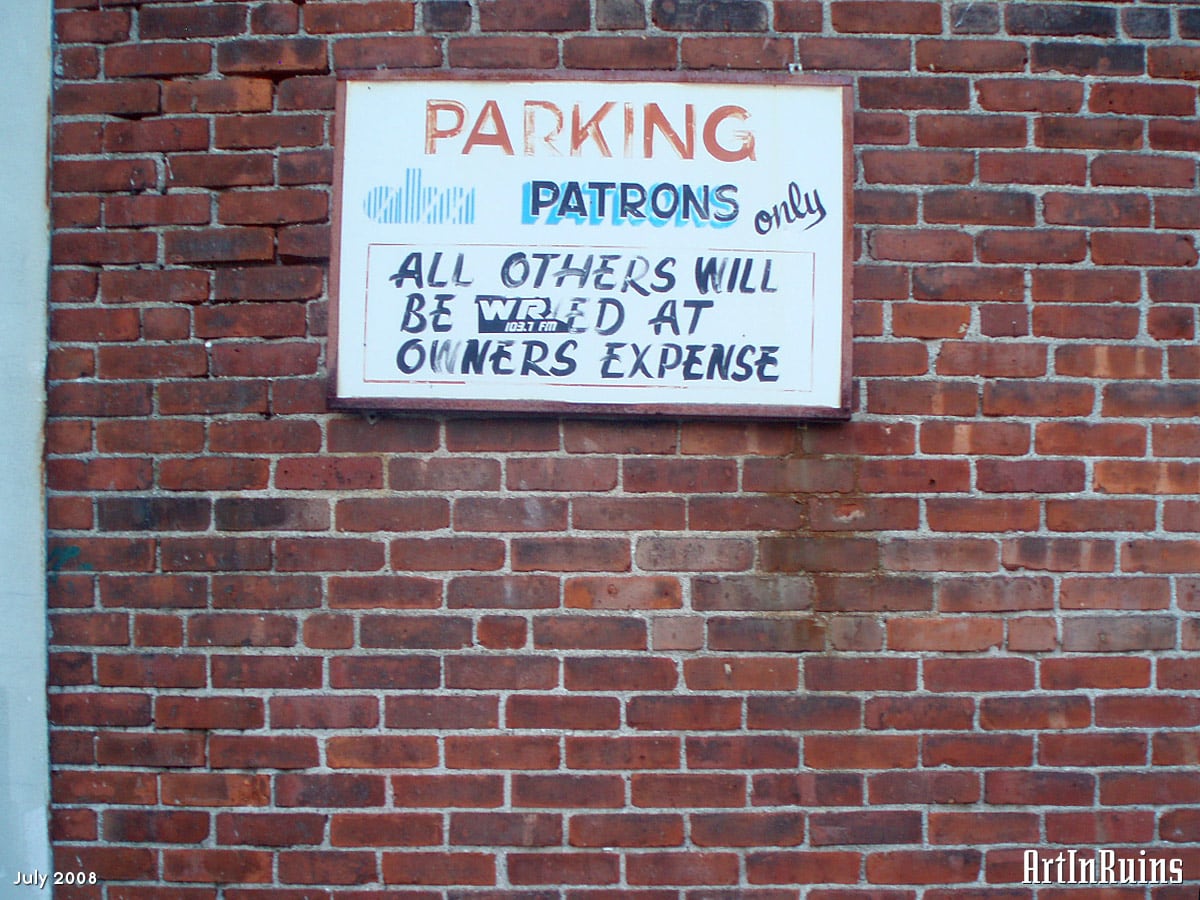 PARKING
PATRONS only
ALL OTHERS WILL
BE WR ED AT
103.7 FM
OWNERS EXPENSE
July 2008
ArtInRuins